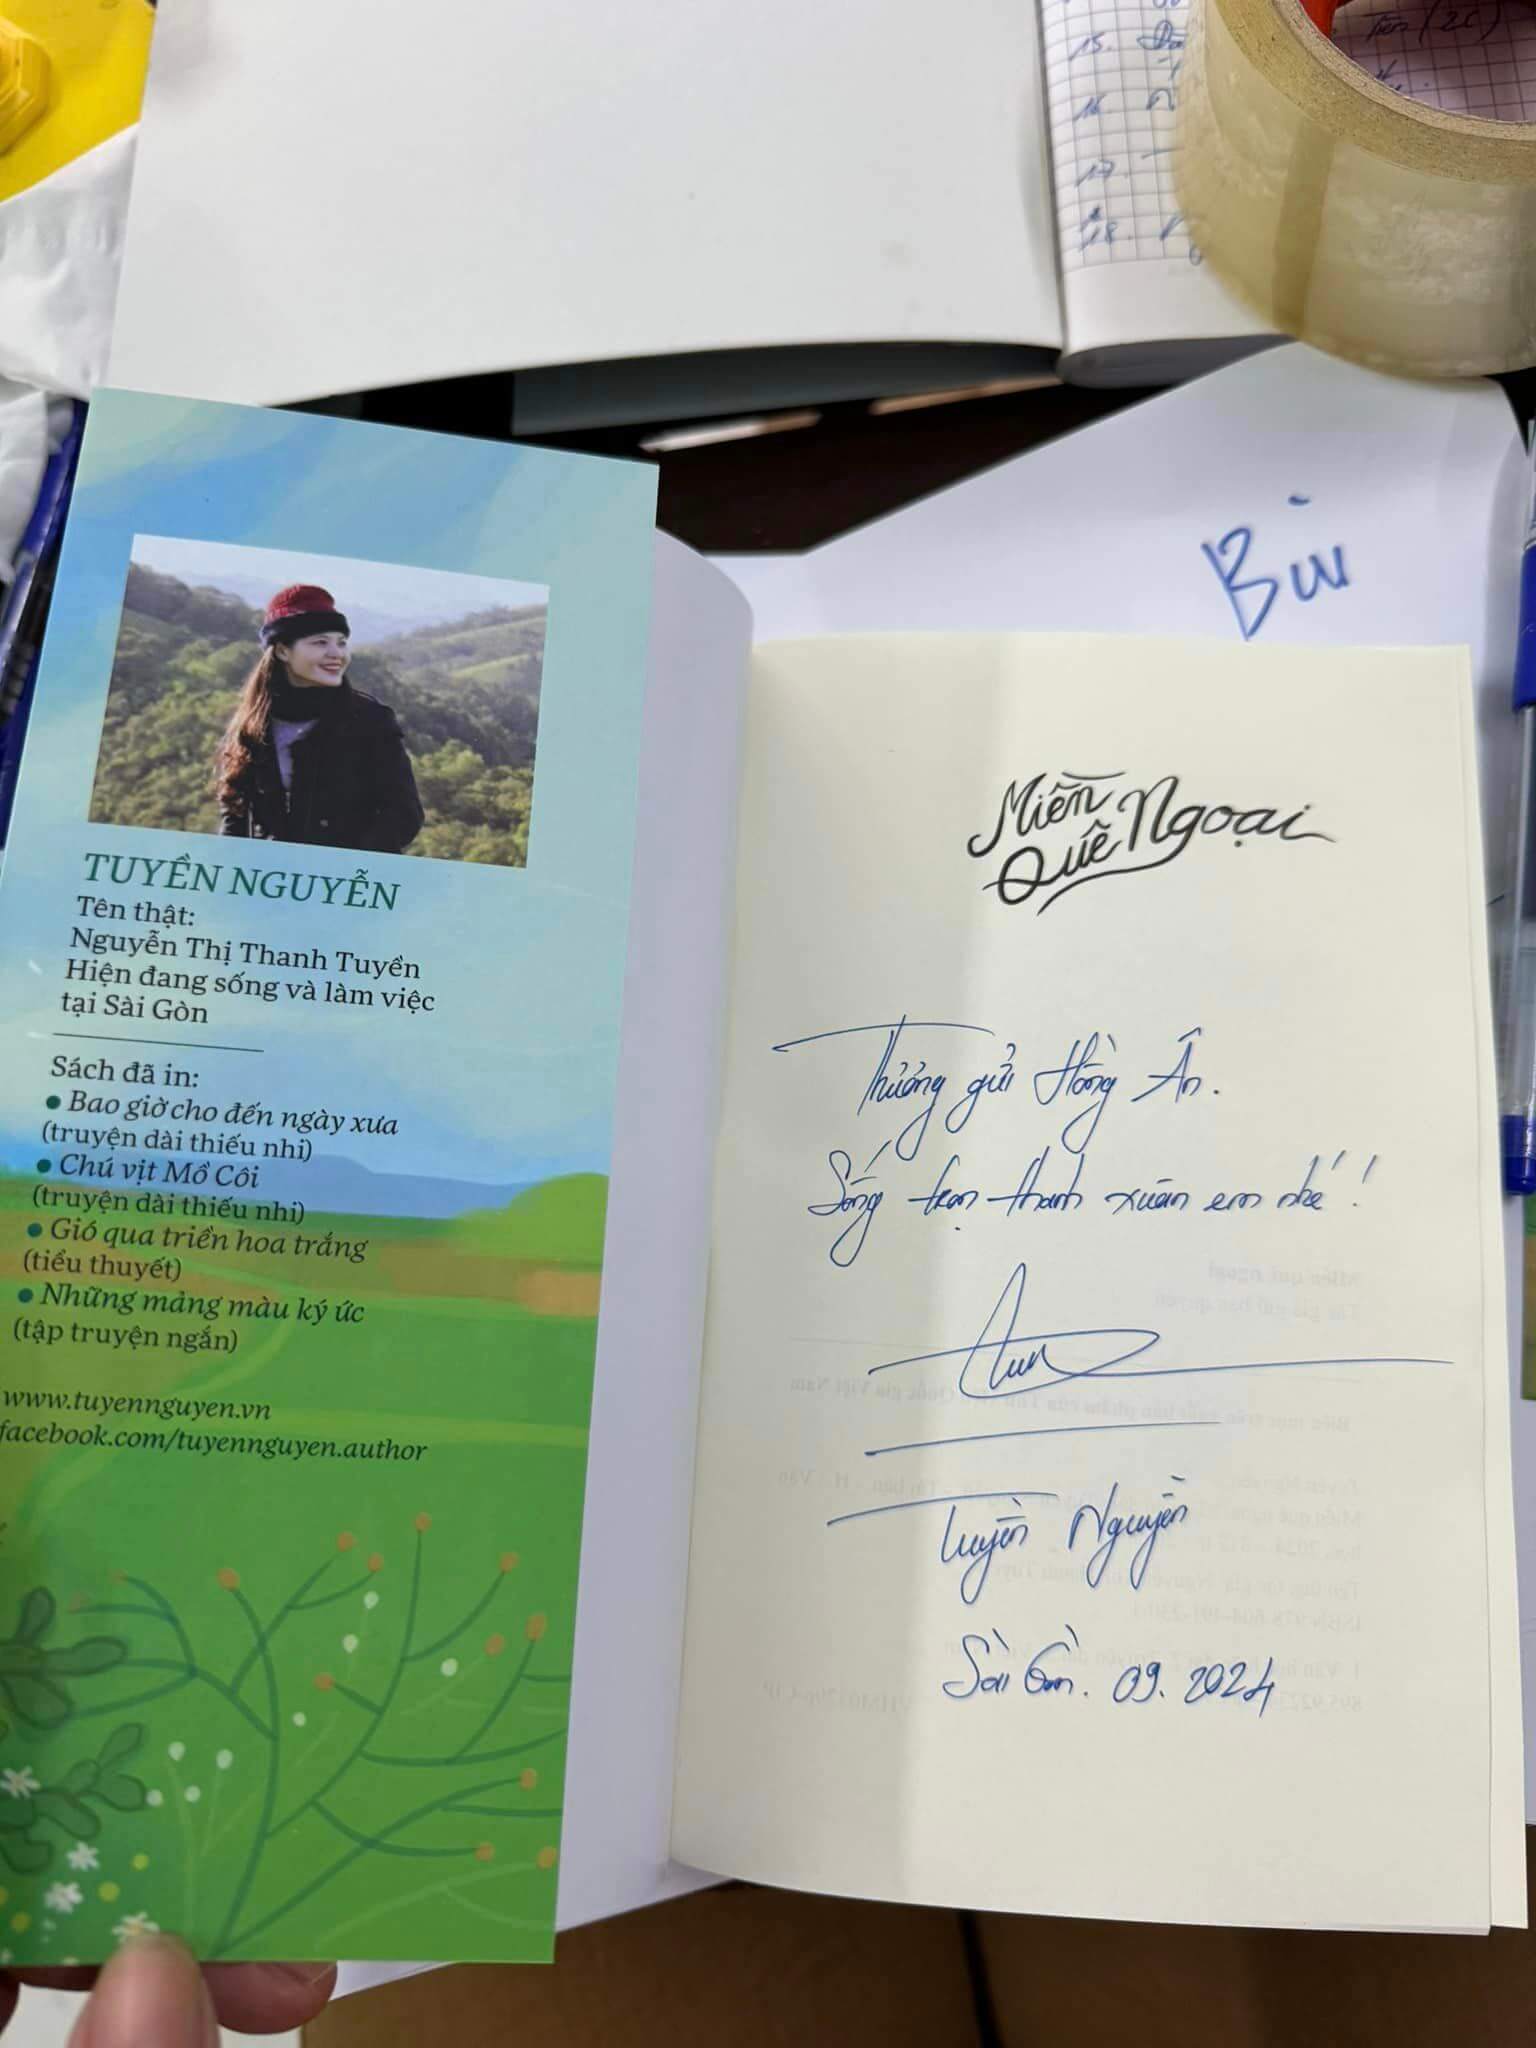 15.
16.
17.
18.
Bùi
TUYỀN NGUYỄN
Tên thật:
Nguyễn Thị Thanh Tuyền
Hiện đang sống và làm việc
tại Sài Gòn
Sách đã in:
● Bao giờ cho đến ngày xưa
(truyện dài thiếu nhi)
● Chú vịt Mồ Côi
(truyện dài thiếu nhi)
● Gió qua triền hoa trắng
(tiểu thuyết)
● Những mảng màu ký ức
(tập truyện ngắn)
www.tuyennguyen.vn
facebook.com/tuyennguyen.author
Miền
Quê Ngoại
Thương gửi Hồng Ân.
Sống trọn thanh xuân em nhé!
Tuyền Nguyễn
Sài Gòn. 09. 2024